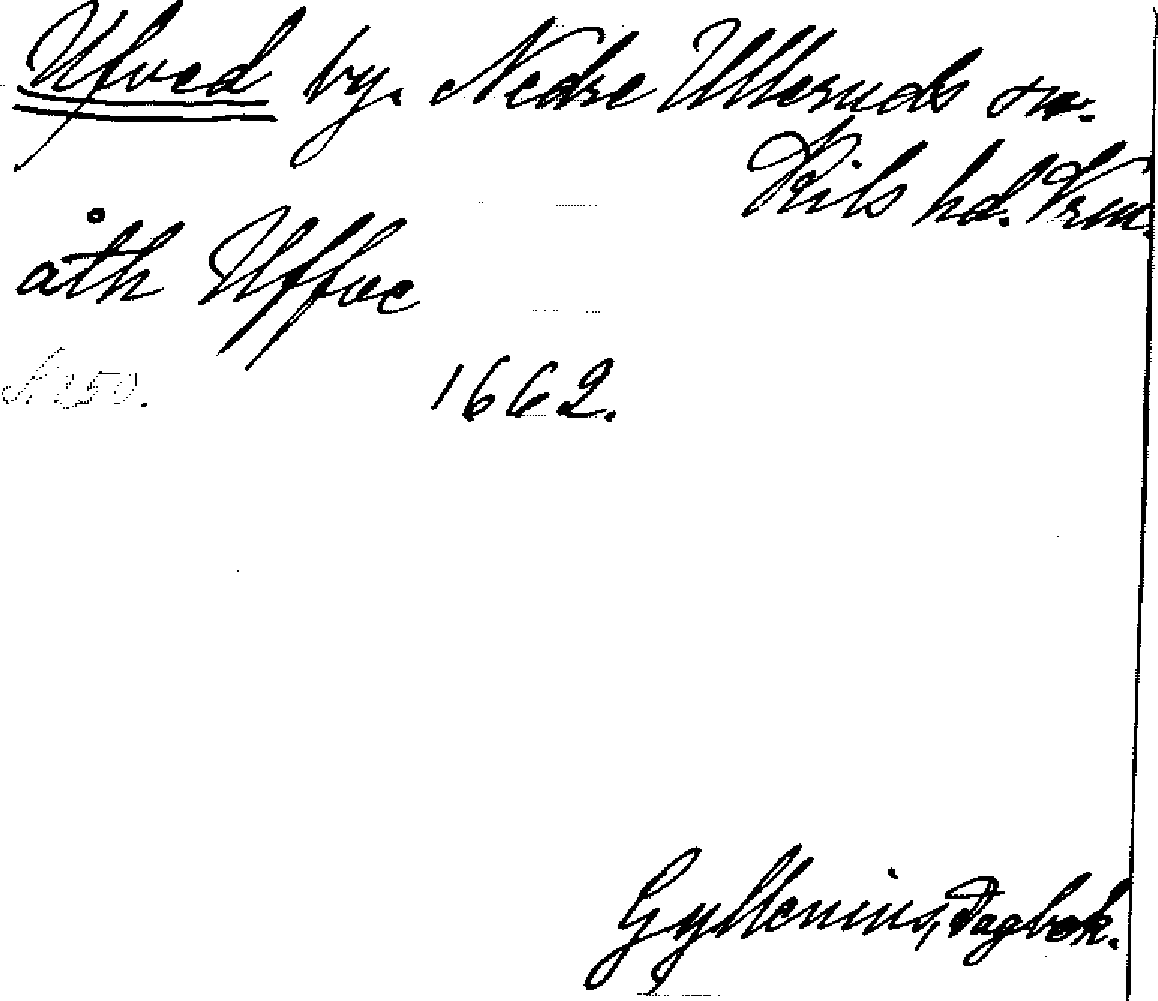 Ufved by. Nedre Ulleruds sn.
Kils hd. Vrm.
åth Uffve
1662.
Gyllenius, Dagbok.